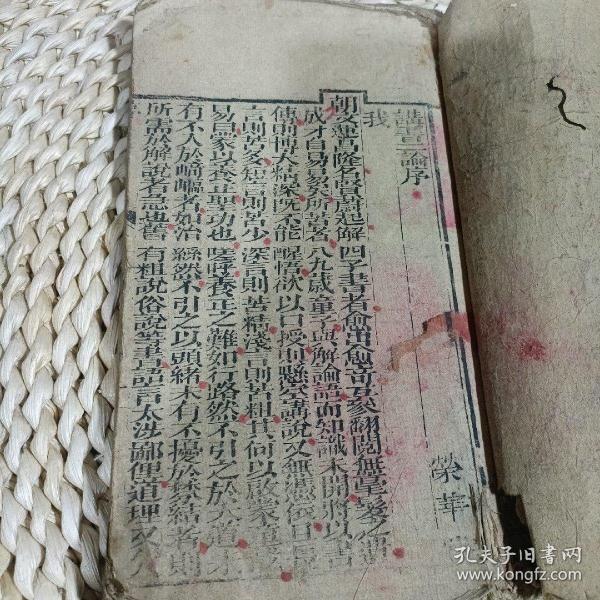 講書二論序
我
朝文運昌隆名賢蔚起解四子書者愈出愈奇互家翻閱無毫髮之
成才自易易矣所苦者八九歲童子與解論語而知識未開將以書
傳則博大精深既不能醒悟欲以口授則懸空講說又無憑依且
言則苦多短言則苦少深言則苦糊淺言則苦粗其何以啟蒙
易蒙以養正聖功也嗟呼養正之難如行路然不引之於大道
有不入於崎嶇者如治絲然不引之以頭緒未有不擾於紛結者則
所需於解說者急也舊有粗說俗說等書語言太涉鄙俚道理又
榮華
孔夫子旧书网
www.kongfz.com